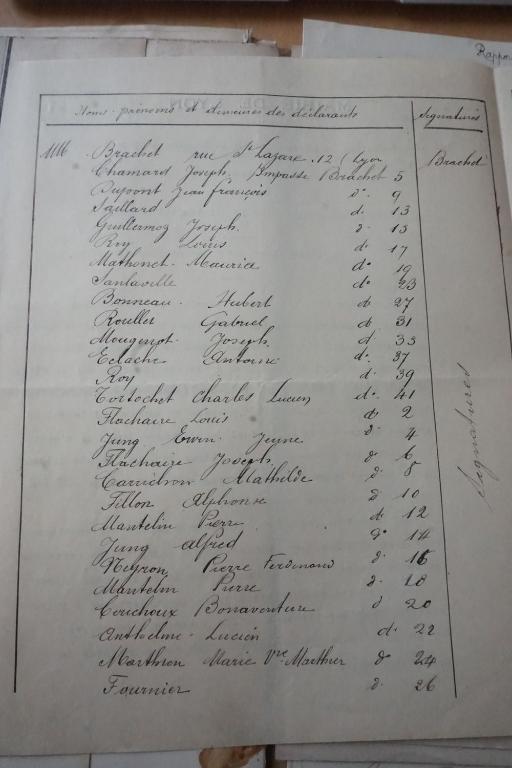 Rappo
Noms - prénoms et demeures des déclarants Signatures
MM Brachet rue St Lazare. 12 (Lyon Brachet
Chamard Joseph. Impasse Brachet 5
Dupont Jean françois do 9
Saillard d. 13
Guillermoz Joseph. d. 15
Roy Louis d. 17
Mathonet. Maurice do 19
Santaville do 23
Bonneau. Hubert do 27
Roullet Gabriel do 31
Mougenot. Joseph. d. 33
Eclache Antoine do. 37
Roy d. 39
Tortochet Charles Lucien do. 41
Flachaire Louis do 2
Jung Erwin Jeune d. 4
Flachaire Joseph. d 6
Mathilde d. 8
Fillon Alphonse d 10
Mantelin Pierre do 12
Jung Alfred do 14
Neyron Pierre Ferdinand d. 16
Mantelin Pierre d. 18
Couchoux Bonaventure d 20
Anthelme. Lucien d. 22
Marie Vve do 24
Fournier d. 26
Signatures